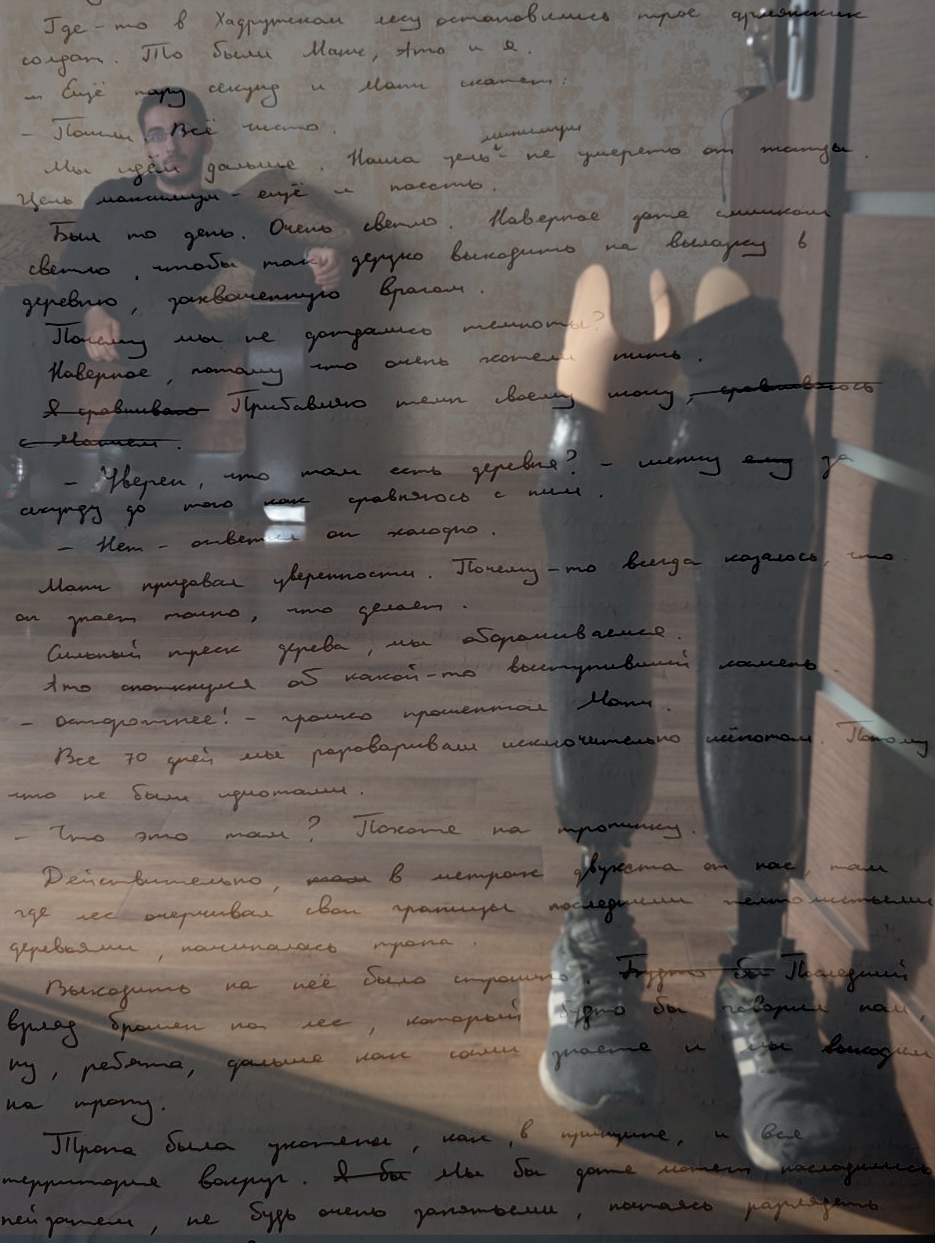 Где-то в Хадрутском лесу остановились трое армянских
солдат. То были Мати, Ато и я.
Ещё пару секунд и Мати скажет:
- Пошли. Всё чисто.
минимум
Мы идём дальше. Наша цель - не умереть от жажды.
Цель максимум - ещё и поесть.
Был то день. Очень светло. Наверное даже слишком
светло, чтобы так дерзко выходить на вылазку в
деревню, захваченную врагом.
Почему мы не дождались темноты?
Наверное, потому что очень хотели пить.
Я сравниваю Прибавляю темп своему шагу, сравниваюсь
с Матием.
- Уверен, что там есть деревня? - шепчу ему за
секунду до того как сравняюсь с ним.
- Нет - ответил он холодно.
Мати придавал уверенности. Почему-то всегда казалось, что
он знает точно, что делает.
Сильный треск дерева, мы оборачиваемся.
Ато споткнулся об какой-то выступивший камень
- осторожнее! - громко прошептал Мати.
Все 70 дней мы разговаривали исключительно шёпотом. Потому
что не были идиотами.
- Что это там? Похоже на тропинку.
Действительно, в метрах двухста от нас, там
где лес очерчивал свои границы последними желтолистыми
деревьями, начиналась тропа.
Выходить на неё было страшно. Будто бы Последний
взгляд брошен на лес, который будто бы говорил нам,
ну, ребята, дальше как сами знаете и мы выходим
на тропу.
Тропа была укатена, как, в принципе, и вся
территория вокруг. Я бы Мы бы даже может насладились
пейзажем, не будь очень занятыми, пытаясь разглядеть